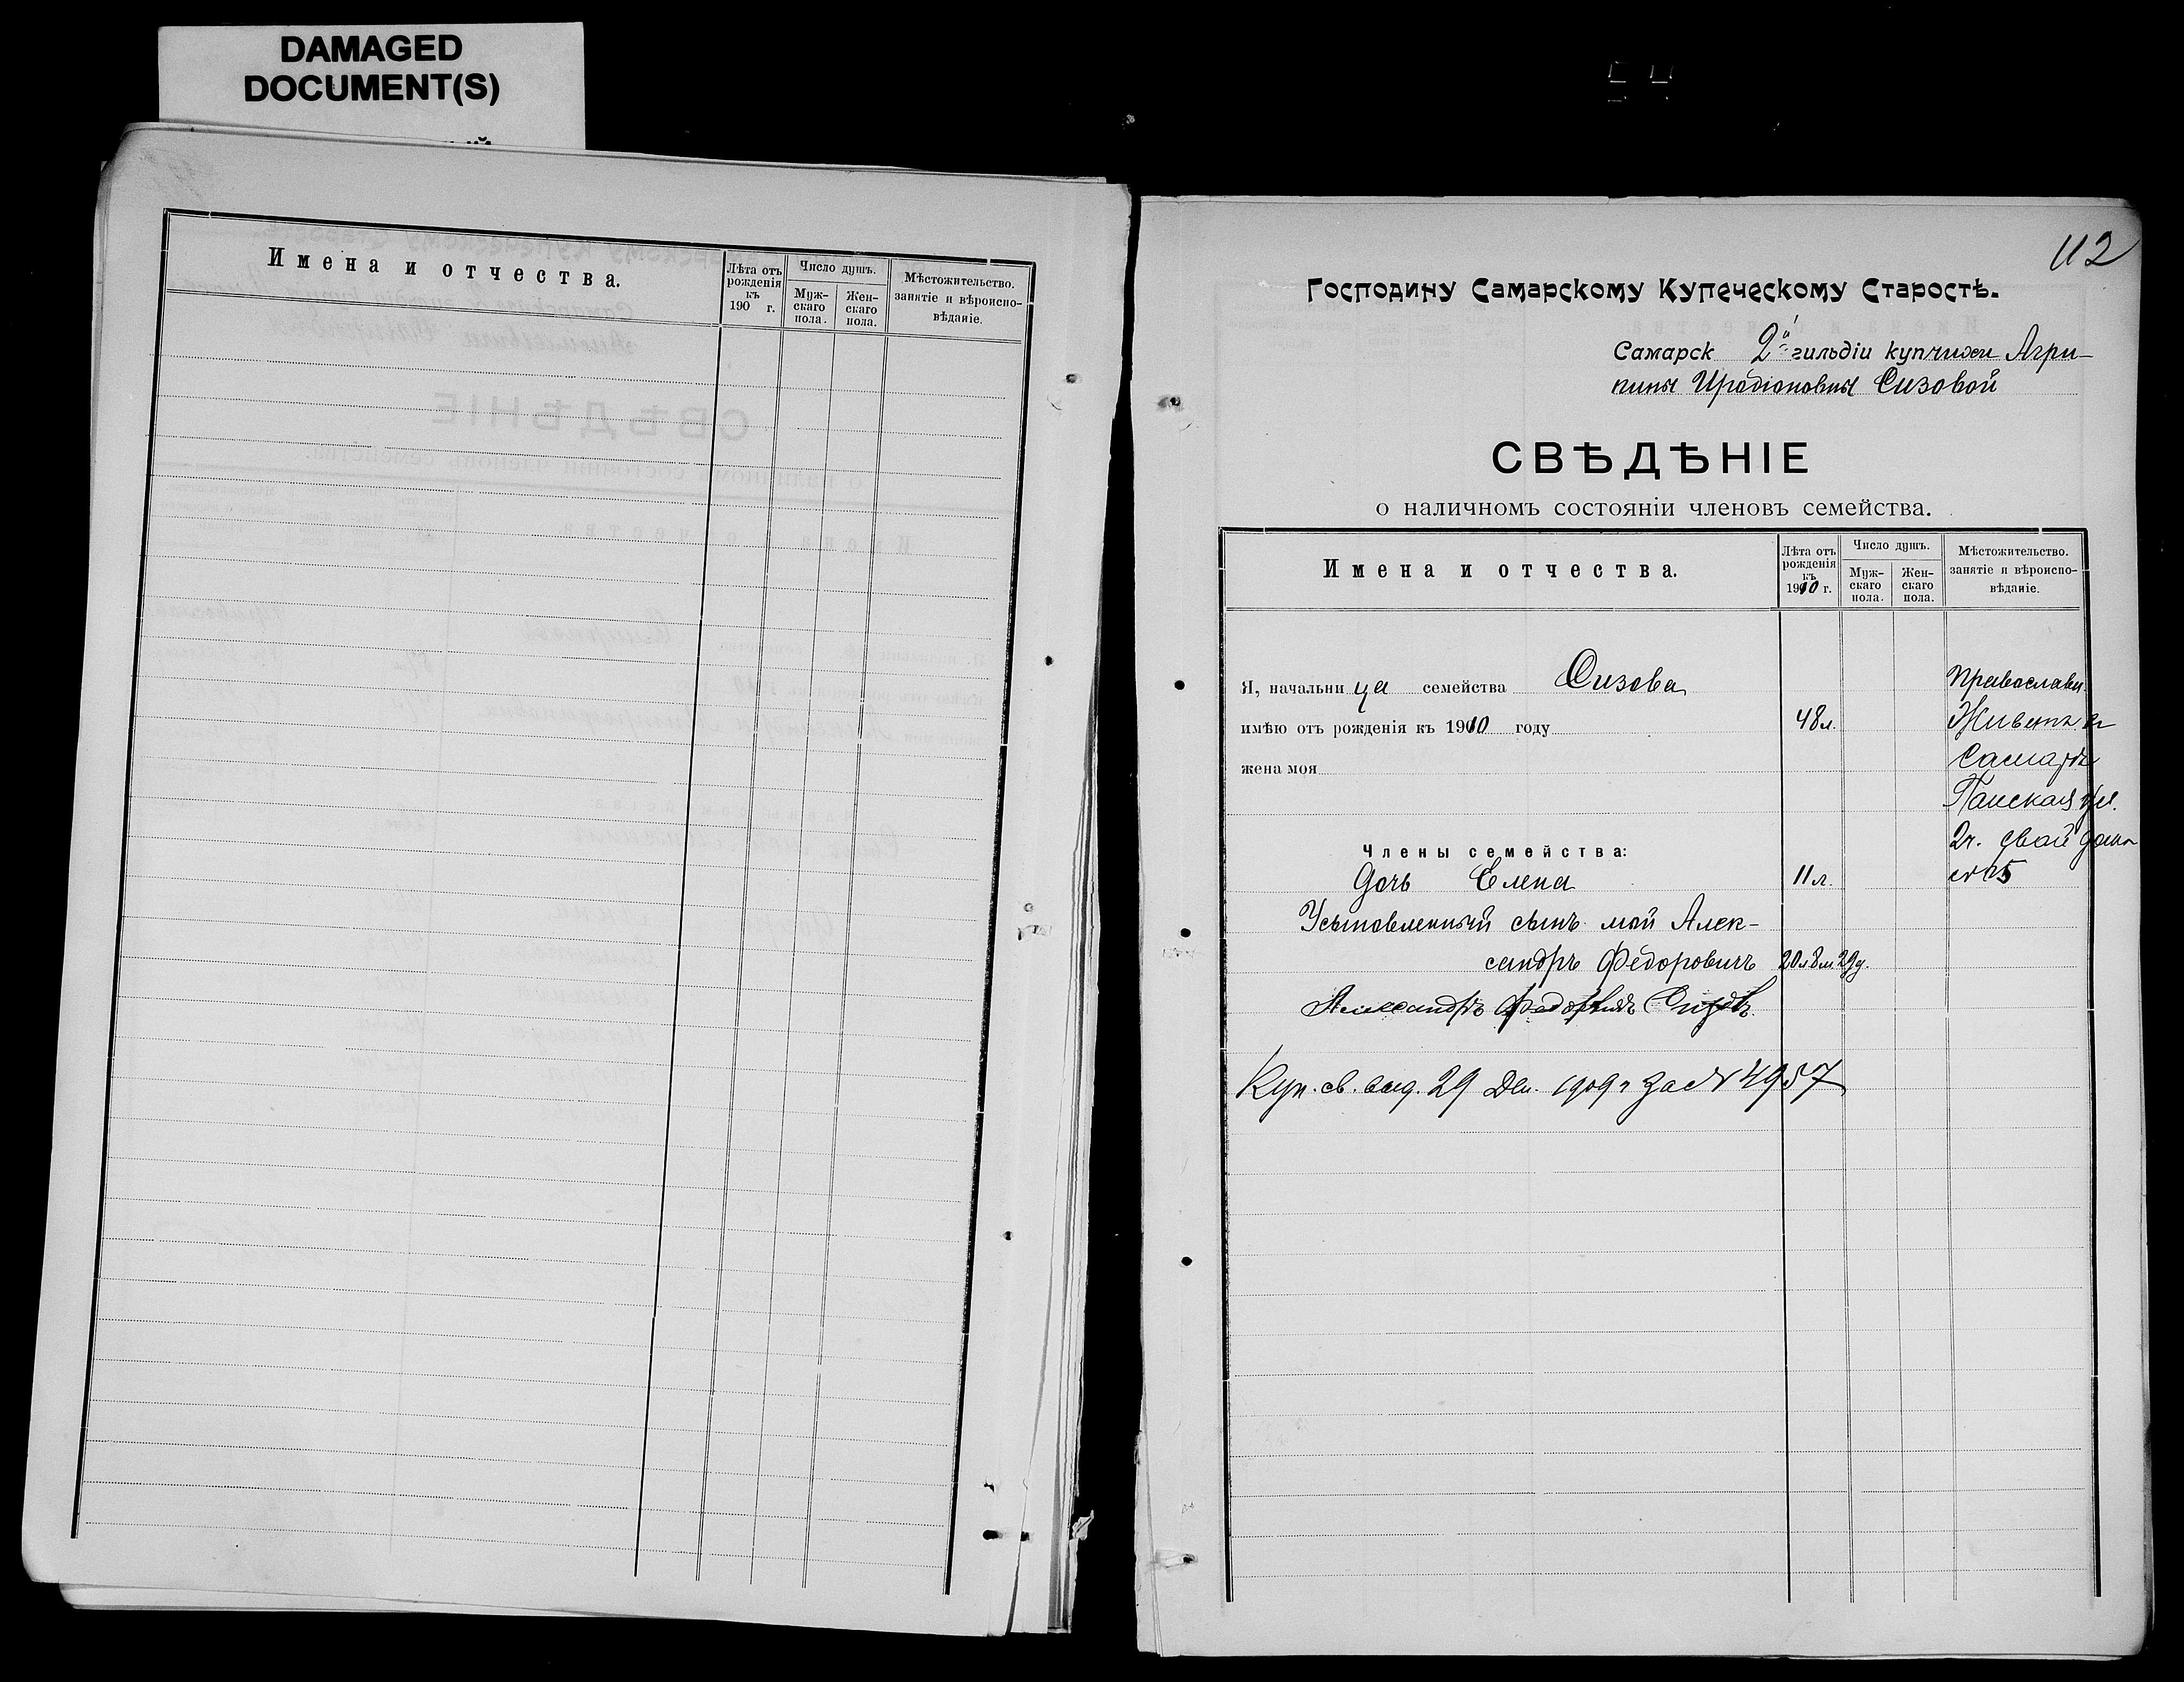 DAMAGED
DOCUMENT(S)
Имена и отчества.
Лѣта отъ рожденія къ 190 г.
Число душъ.
Мужскаго пола.
Женскаго пола.
Мѣстожительство. занятіе и вѣроисповѣданіе.
112
Господину Самарскому Купеческому Старостѣ.
Самарск 2й гильдіи купчихи Агри-
пины Иродіоновны Сизовой
СВѢДѢНІЕ
о наличномъ состояніи членовъ семейства.
Имена и отчества.
Лѣта отъ рожденія къ 1910 г.
Число душъ.
Муж-скаго пола.
Жен-скаго пола.
Мѣстожительство. занятіе и вѣроиспо-вѣданіе.
Я, начальница семейства Сизова
Православн.
имѣю отъ рожденія къ 1910 году 48 л.
Живетъ въ
жена моя
Самарѣ
Панская ул.
2 ч. свой домъ
Члены семейства:
Дочь Елена 11 л.
Усыновленный сынъ мой Алек-
сандръ Федоровичъ 20 л 8 м 29 д.
Александръ Федоровичъ Сизовъ.
Куп. св. выд. 29 Дек. 1909 г за № 4957